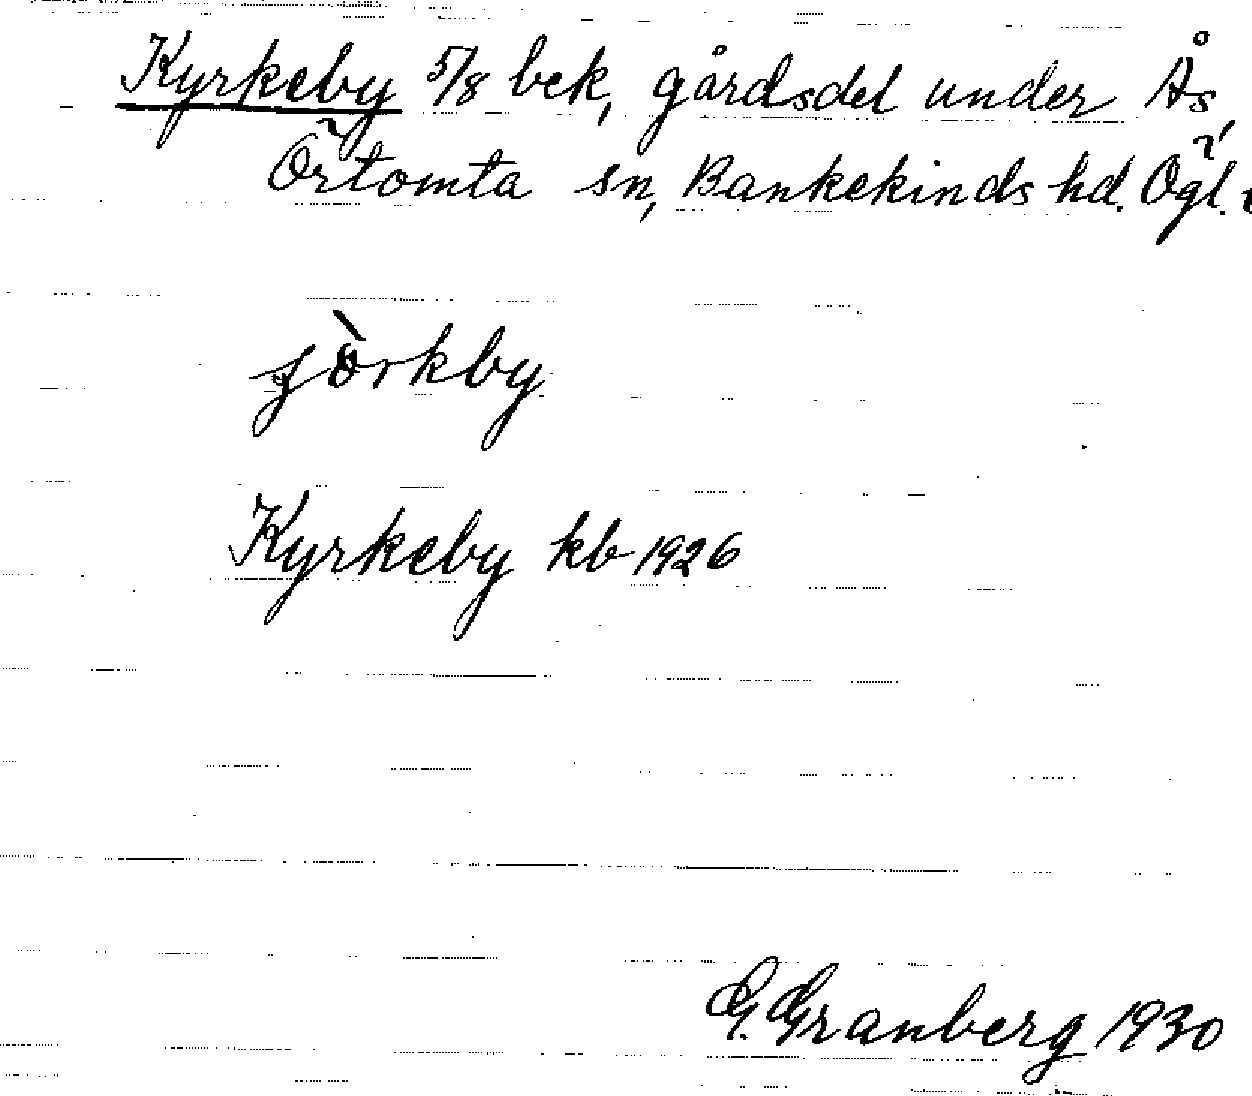 Kyrkeby 5/8 bek, gårdsdel under Ås,
Örtomta sn, Bankekinds hd. Ögl.
Kyrkeby kb 1926
G. Granberg 1930